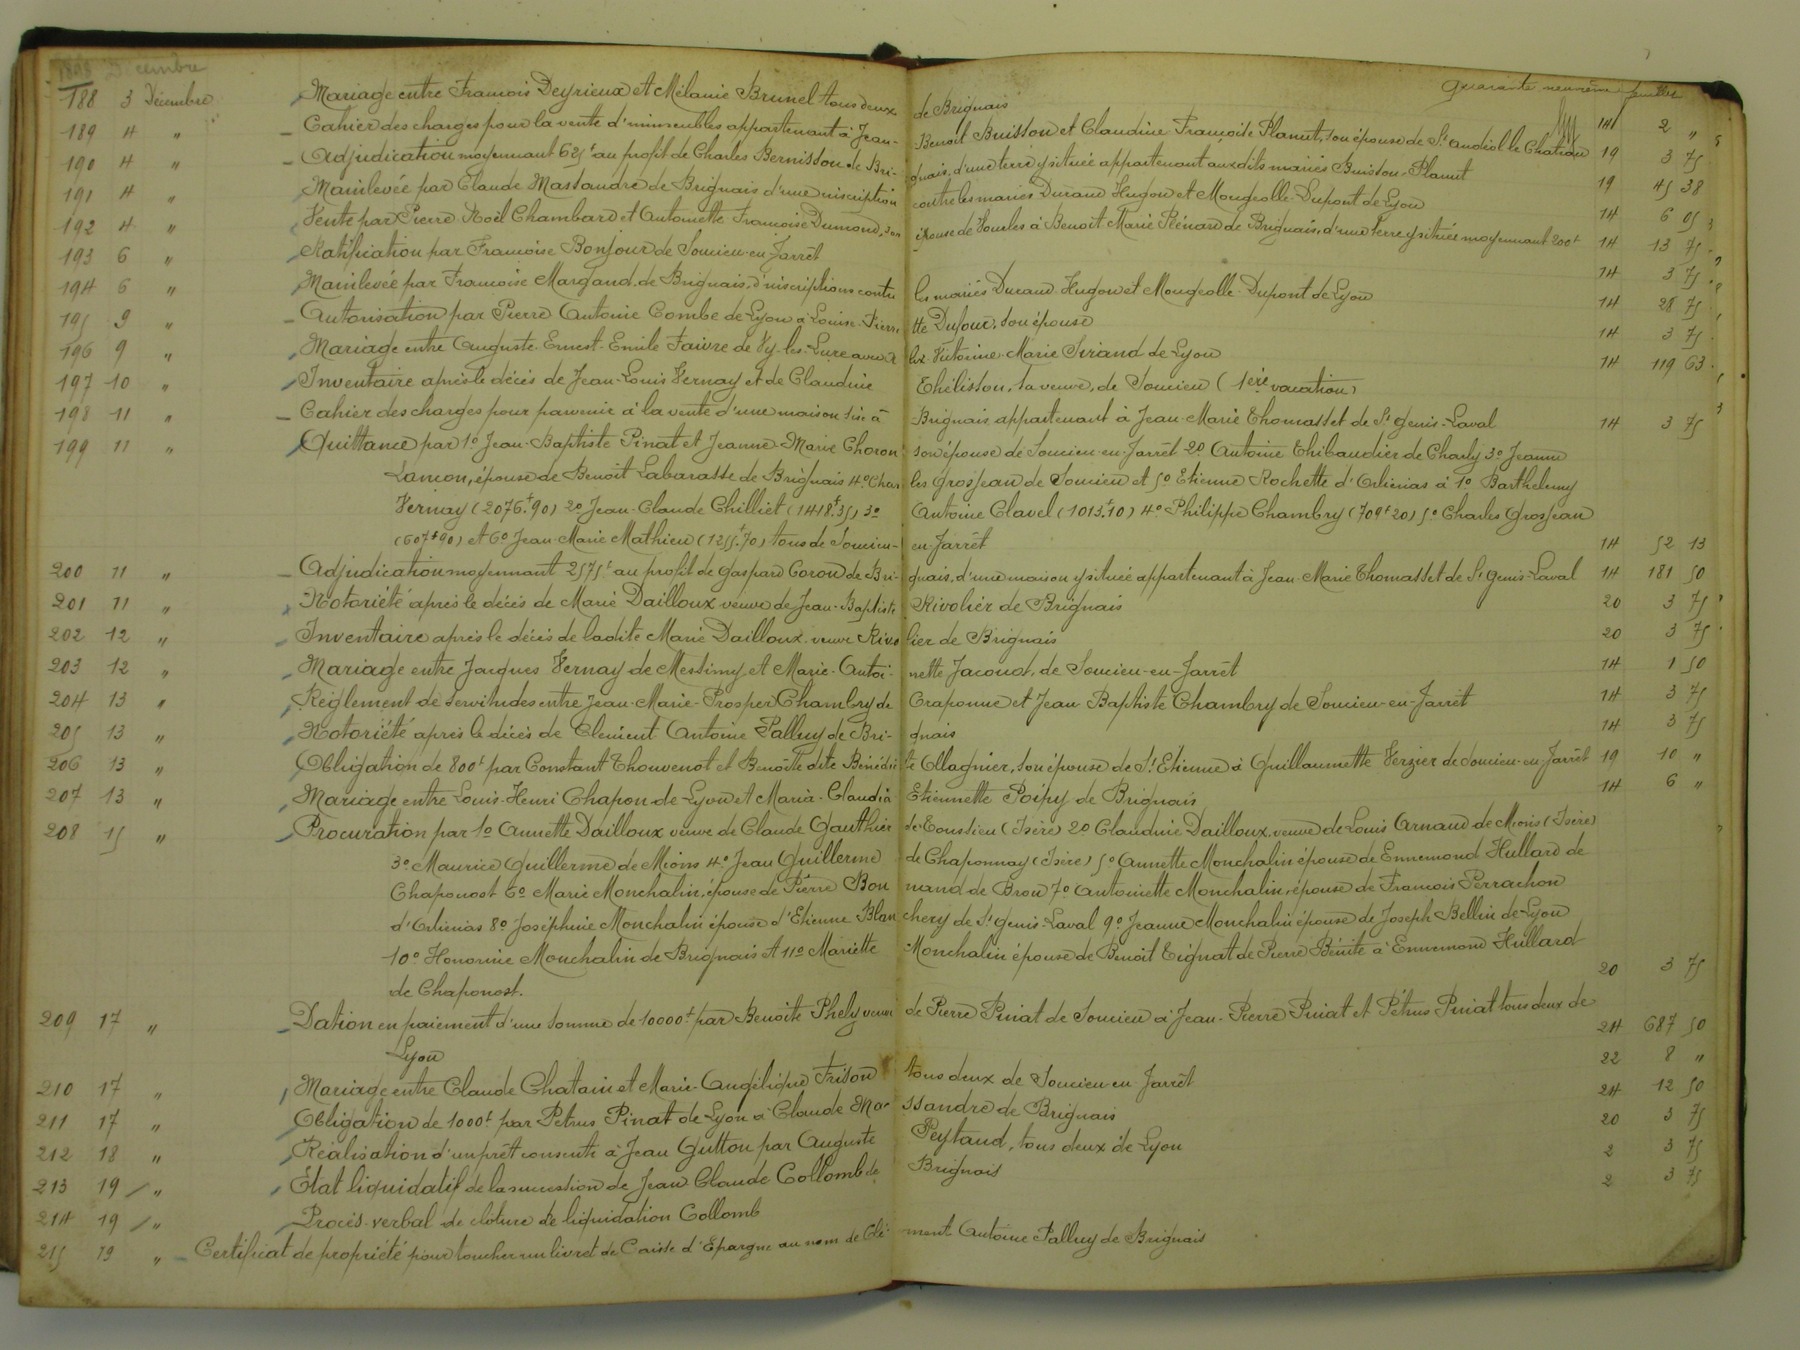 1898 Décembre
quarante neuvième feuillet
188 3 Décembre Mariage entre François Deyrieux et Mélanie Brunel tous deux de Brignais 14 2 "
189 4 " Cahier des charges pour la vente d'immeubles appartenant à Jean-Benoit Buisson et Claudine Françoise Planut, son épouse de St Andéol le Chateau 19 3 75
190 4 " Adjudication moyennant 625f au profit de Charles Bernisson de Brignais, d'une terre y située appartenant aux dits mariés Buisson-Planut 19 45 38
191 4 " Mainlevée par Claude Massandre de Brignais d'une inscription contre les mariés Durand Hugon et Mougeolle-Dupont de Lyon 14 6 05
192 4 " Vente par Pierre Noël Chambard et Antoinette Françoise Dumond, son épouse de Vourles à Benoit Marie Plénard de Brignais, d'une terre y située moyennant 200f 14 13 75
193 6 " Ratification par Françoise Bonjour de Soucieu-en-Jarrêt 14 3 75
194 6 " Mainlevée par Françoise Margand, de Brignais, d'inscriptions contre les mariés Durand-Hugon et Mougeolle-Dupont de Lyon 14 28 75
195 9 " Autorisation par Pierre Antoine Combe de Lyon à Louise-Pierrette Dufour, son épouse 14 3 75
196 9 " Mariage entre Auguste-Ernest-Emile Faivre de Vy-les-Lure avec Victorine-Marie Siriand de Lyon 14 119 63
197 10 " Inventaire après le décès de Jean-Louis Vernay et de Claudine Thélisson, sa veuve, de Soucieu (1ère vacation)
198 11 " Cahier des charges pour parvenir à la vente d'une maison sise à Brignais appartenant à Jean-Marie Thomasset de St Genis-Laval 14 3 75
199 11 " Quittance par 1° Jean-Baptiste Pinat et Jeanne-Marie Choron son épouse de Soucieu-en-Jarrêt 2° Antoine Thibaudier de Charly 3° Jeanne
Lancon, épouse de Benoit Labarasse de Brignais 4° Charles Grosjean de Soucieu et 5° Etienne Rochette d'Orlienas à 1° Barthelemy
Vernay (2076f.90) 2° Jean-Claude Chilliet (1418f.35) 3° Antoine Clavel (1013f.10) 4° Philippe Chambry (709f20) 5° Charles Grosjean
(607f90) et 6° Jean-Marie Mathieu (1255f.70) tous de Soucieu-en-Jarrêt 14 52 13
200 11 " Adjudication moyennant 2575f au profit de Gaspard Coron de Brignais, d'une maison y située appartenant à Jean-Marie Thomasset de St Genis-Laval 14 181 50
201 11 " Notoriété après le décès de Marie Dailloux veuve de Jean-Baptiste Rivolier de Brignais 20 3 75
202 12 " Inventaire après le décès de ladite Marie Dailloux veuve Rivolier de Brignais 20 3 75
203 12 " Mariage entre Jacques Vernay de Messimy et Marie-Antoinette Jacoud, de Soucieu-en-Jarrêt 14 1 50
204 13 " Règlement de servitudes entre Jean-Marie-Prosper Chambry de Craponne et Jean Baptiste Chambry de Soucieu-en-Jarrêt 14 3 75
205 13 " Notoriété après le décès de Clément Antoine Palluy de Brignais 14 3 75
206 13 " Obligation de 800f par Constant Thouvenot et Benoîte dite Bénédicte Ollagnier, son épouse de St Etienne à Guillaumette Verzier de Soucieu-en-Jarrêt 19 10 "
207 13 " Mariage entre Louis-Henri Chapon de Lyon et Maria-Claudia Etiennette Poipy de Brignais 14 6 "
208 15 " Procuration par 1° Annette Dailloux veuve de Claude Gauthier de Toussieu (Isère) 2° Claudine Dailloux, veuve de Louis Arnaud de Mions (Isère)
3° Maurice Guillerme de Mions 4° Jean Guillerme de Chaponnay (Isère) 5° Annette Monchalin épouse de Ennemond Hullard de
Chaponost 6° Marie Monchalin, épouse de Pierre Bonnand de Bron 7° Antoinette Monchalin, épouse de François Perrachon
d'Orlienas 8° Joséphine Monchalin épouse d'Etienne Blanchery de St Genis-Laval 9° Jeanne Monchalin épouse de Joseph Bellin de Lyon
10° Honorine Monchalin de Brignais et 11° Mariette Monchalin épouse de Benoit Tignat de Pierre Bénite à Ennemond Hullard
de Chaponost. 20 3 75
209 17 " Dation en paiement d'une somme de 10000f par Benoite Phély veuve de Pierre Pinat de Soucieu à Jean-Pierre Pinat et Pétrus Pinat tous deux de
Lyon 24 687 50
210 17 " Mariage entre Claude Chatain et Marie-Angélique Frison tous deux de Soucieu-en-Jarrêt 22 8 "
211 17 " Obligation de 1000f par Petrus Pinat de Lyon à Claude Massandre de Brignais 24 12 50
212 18 " Réalisation d'un prêt consenti à Jean Gutton par Auguste Peytaud, tous deux de Lyon 20 3 75
213 19 " Etat liquidatif de la succession de Jean Claude Collomb de Brignais 2 3 75
214 19 " Procès-verbal de clôture de liquidation Collomb 2 3 75
215 19 " Certificat de propriété pour toucher un livret de Caisse d'Epargne au nom de Clément Antoine Palluy de Brignais